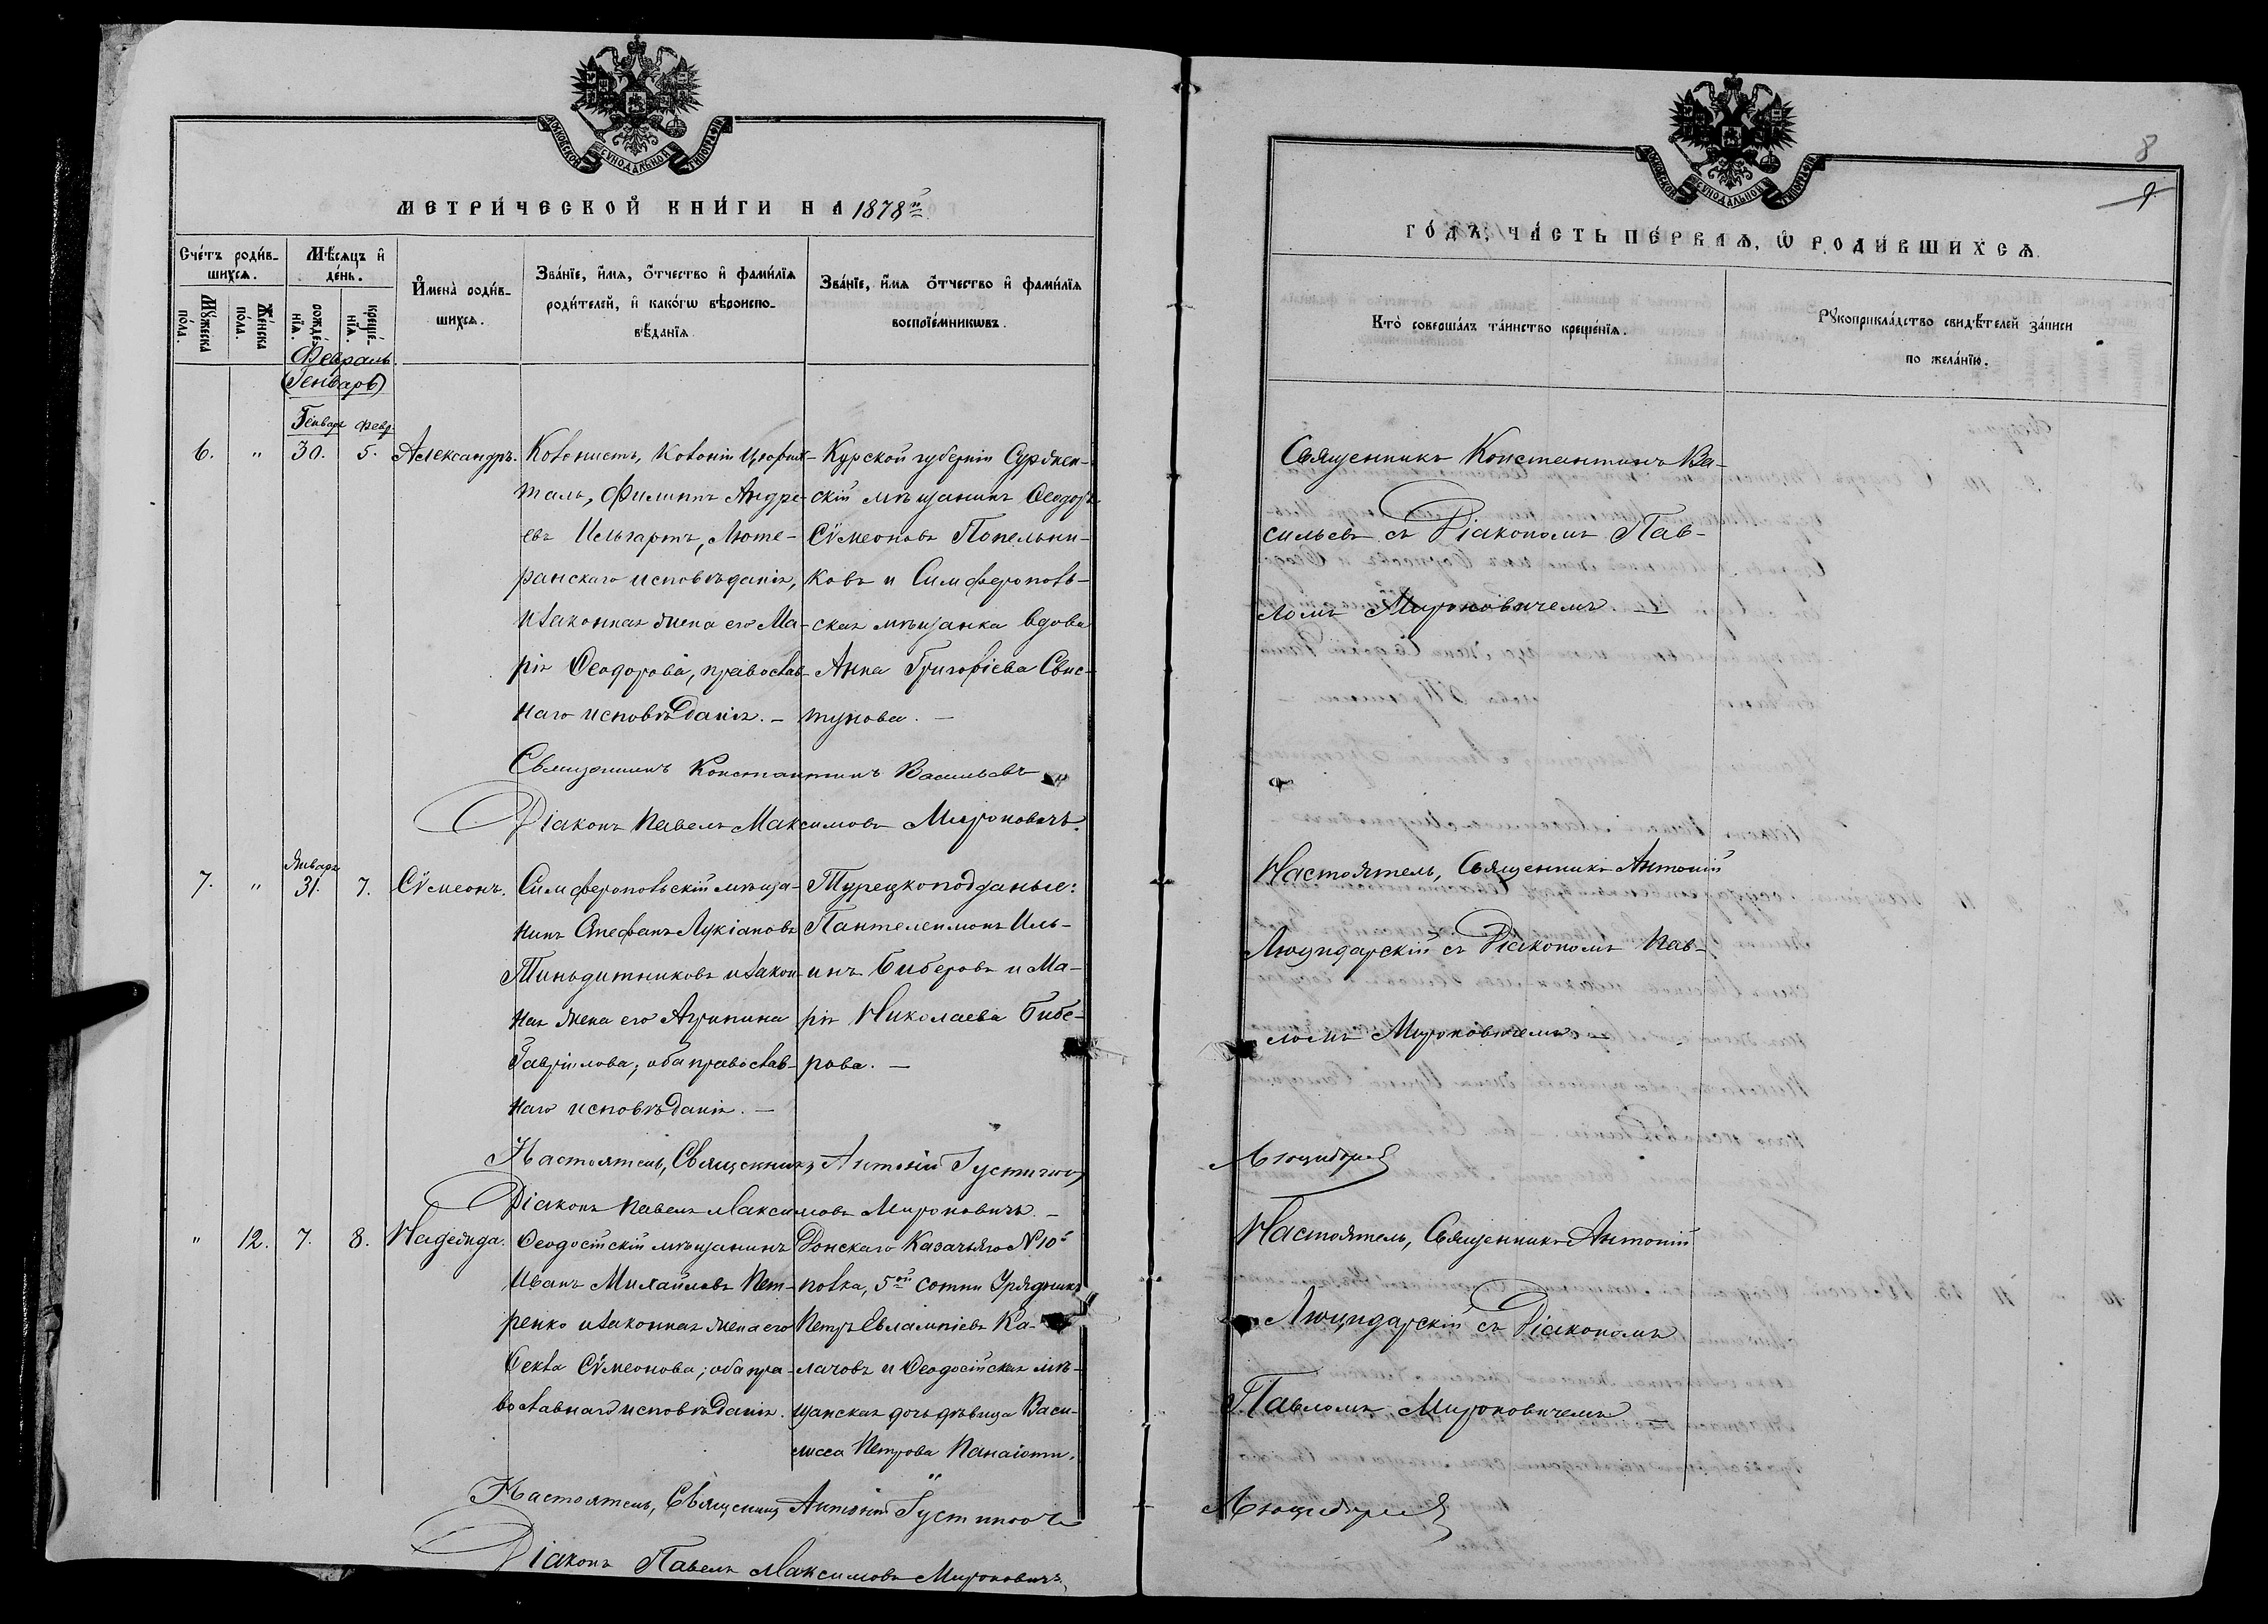 МОСКОВСКОЙ СѴНОДАЛЬНОЙ ТИПОГРАФІИ
МЕТРИ́ЧЕСКОЙ КНИ́ГИ НА 1878й
Сче́тъ роди́в-
шихся.
Мѣ́сяцъ и҆
де́нь.
Мꙋ́жеска
по́ла.
Же́нска
по́ла.
рожде́-
нїѧ.
креще́-
нїѧ.
И҆мена̀ роди́в-
шихсѧ.
Зва́нїе, и҆́мѧ, ѻ҆́тчество и҆ фами́лїѧ
роди́телей, и҆ како́гѡ вѣроиспо-
вѣ́данїѧ
Зва́нїе, и҆́мѧ ѻ҆́тчество и҆ фами́лїѧ
воспрїе́мникѡвъ.
Февраль
(Генварь)
Генварь Февр.
6. " 30. 5. Александръ.
Колонистъ, колоніи Цюрих-
таль, Филиппъ Андре-
евъ Ильгартъ, Люте-
ранскаго исповѣданія,
и законная жена его Ма-
рія Ѳеодорова, православ-
наго исповѣданія. –
Курской губерніи
скій мѣщанинъ Ѳеодоръ
Сѵмеоновъ Попельни-
ковъ и Симферополь-
ская мѣщанка вдова
Анна Григоріева Свис-
тунова. –
Священникъ Константинъ Васильевъ
Діаконъ Павелъ Максимовъ Мироновичъ.
Январь
7. " 31. 7. Сѵмеонъ.
Симферопольскій мѣща-
нинъ Стефанъ Лукіановъ
и закон-
ная жена его Агрипина
Гавріилова, оба православ-
наго исповѣданія. –
Турецкоподданые:
Пантелеимонъ Иль-
инъ Биберовъ и Ма-
рія Николаева Бибе-
рова. –
Настоятель, Священникъ Антоній
Діаконъ Павелъ Максимовъ Мироновичъ. –
" 12. 7. 8. Надежда.
Ѳеодосійскій мѣщанинъ
Иванъ Михайловъ Пет-
ренко и законная жена его
Ѳекла Сѵмеонова; оба пра-
вославнаго исповѣданія.
Донскаго Казачьяго №10го
полка, 5ой сотни Урядникъ
Петръ Евлампіевъ Ка-
лачовъ и Ѳеодосійская мѣ-
щанская дочь дѣвица Васи-
лисса Петрова Панаіоти.
Настоятель, Священникъ Антоній
Діаконъ Павелъ Максимовъ Мироновичъ.
МОСКОВСКОЙ СѴНОДАЛЬНОЙ ТИПОГРАФІИ
8
9
ГО́ДЪ, ЧА́СТЬ ПЕ́РВАѦ, Ѽ РОДИ́ВШИХСѦ.
Кто̀ соверша́лъ та́инство креще́нїѧ.
Рꙋкоприкла́дство свидѣ́телей за́писи
по жела́нїю.
Священникъ Константинъ Ва-
сильевъ съ Діакономъ Пав-
ломъ Мироновичемъ. –
Настоятель, Священникъ Антоній
Люцидарскій съ Діакономъ Пав-
ломъ Мироновичемъ. –
Настоятель, Священникъ Антоній
Люцидарскій съ Діакономъ
Павломъ Мироновичемъ –